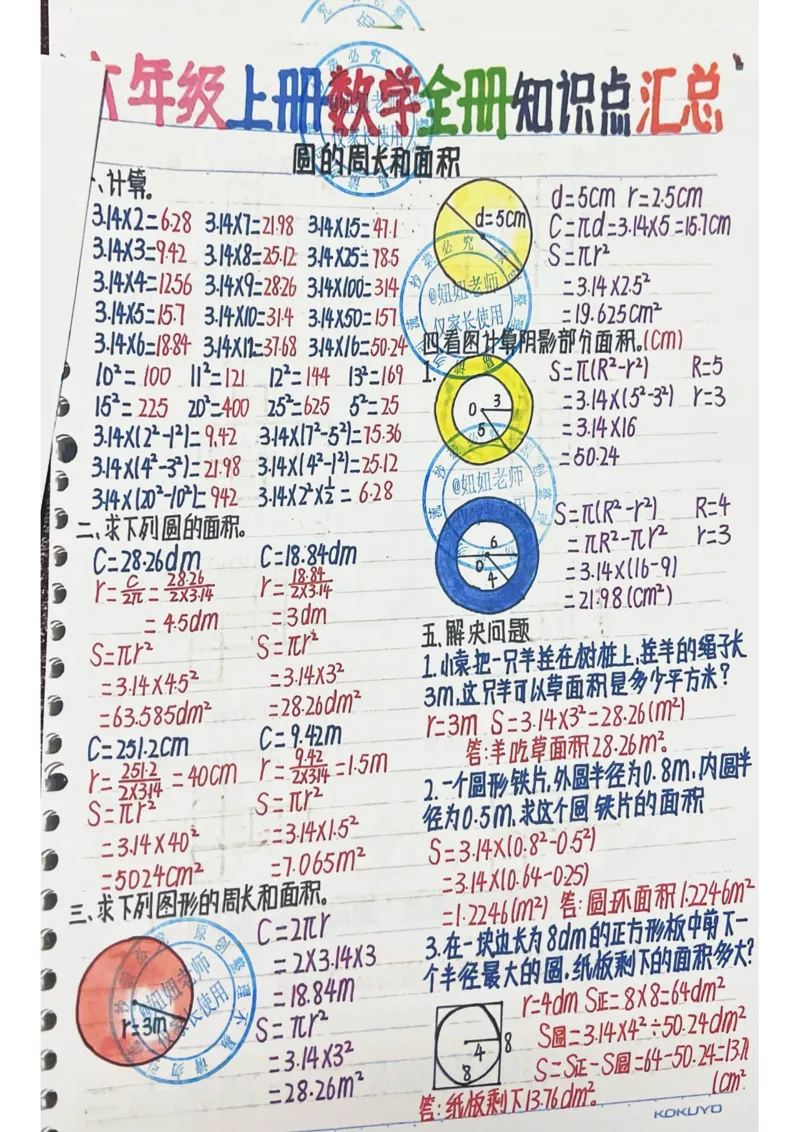 六年级上册数学全册知识点汇总
圆的周长和面积
一、计算。
3.14×2=6.28 3.14×7=21.98 3.14×15=47.1
3.14×3=9.42 3.14×8=25.12 3.14×25=78.5
3.14×4=12.56 3.14×9=28.26 3.14×100=314
3.14×5=15.7 3.14×10=31.4 3.14×50=157
3.14×6=18.84 3.14×12=37.68 3.14×16=50.24
10²=100 11²=121 12²=144 13²=169
15²=225 20²=400 25²=625 5²=25
3.14×(2²-1²)=9.42 3.14×(7²-5²)=75.36
3.14×(4²-3²)=21.98 3.14×(4²-1²)=25.12
3.14×(20²-10²)=942 3.14×2²×½=6.28
二、求下列圆的面积。
C=28.26dm
r=C/2π=28.26/2×3.14
=4.5dm
S=πr²
=3.14×4.5²
=63.585dm²
C=18.84dm
r=18.84/2×3.14
=3dm
S=πr²
=3.14×3²
=28.26dm²
C=251.2cm
r=251.2/2×3.14=40cm
S=πr²
=3.14×40²
=5024cm²
C=9.42m
r=9.42/2×3.14=1.5m
S=πr²
=3.14×1.5²
=7.065m²
三、求下列图形的周长和面积。
r=3m
C=2πr
=2×3.14×3
=18.84m
S=πr²
=3.14×3²
=28.26m²
d=5cm
d=5cm r=2.5cm
C=πd=3.14×5=15.7cm
S=πr²
=3.14×2.5²
=19.625cm²
四.看图计算阴影部分面积。(cm)
1.
0 3
5
S=π(R²-r²) R=5
=3.14×(5²-3²) r=3
=3.14×16
=50.24
6
0
4
S=π(R²-r²) R=4
=πR²-πr² r=3
=3.14×(16-9)
=21.98(cm²)
五.解决问题
1.小袁把一只羊拴在树桩上,拴羊的绳子长
3m,这只羊可以草面积是多少平方米?
r=3m S=3.14×3²=28.26(m²)
答:羊吃草面积28.26m²。
2.一个圆形铁片,外圆半径为0.8m,内圆半
径为0.5m,求这个圆铁片的面积
S=3.14×(0.8²-0.5²)
=3.14×(0.64-0.25)
=1.2246(m²) 答:圆环面积1.2246m²
3.在一块边长为8dm的正方形板中剪下一
个半径最大的圆.纸板剩下的面积多大?
4 8
8
r=4dm S正=8×8=64dm²
S圆=3.14×4²÷50.24dm²
S=S正-S圆=64-50.24=13.71
cm²
答:纸板剩下13.76dm²。
KOKUYO
@妞妞老师
仅家长使用
@妞妞老师
仅家长使用
@妞妞老师
@妞妞老师
仅家长使用
原创整理不易请勿